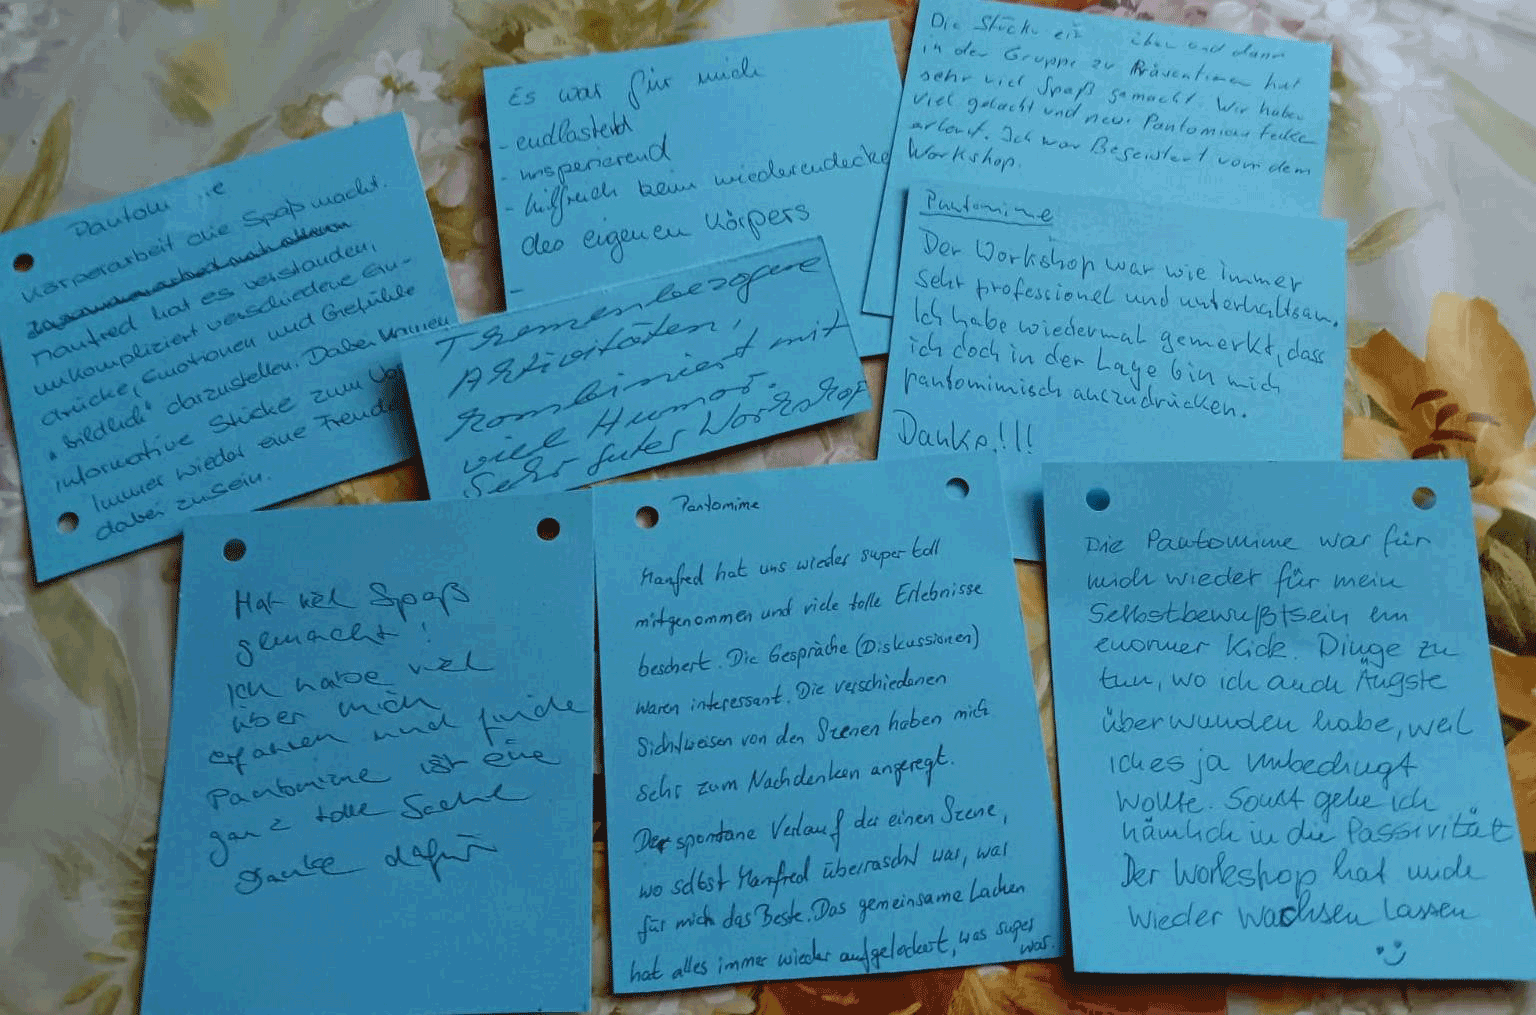 Pantom ie
Körperarbeit die Spaß macht.
Manfred hat es verstanden,
unkompliziert verschiedene Ein-
drücke, Emotionen und Gefühle
"bildlich" darzustellen. Dabei kamen
informative Stücke zum Vor
Immer wieder eine Freude
dabei zu sein.
Es war für mich
- endlastend
- insperierend
- hilfreich beim wiederendecke
des eigenen Körpers
-
Die Stücke ein üben und dann
in der Gruppe zu Präsentieren hat
sehr viel Spaß gemacht. Wir haben
viel gelacht und neue Pantomimen
erlernt. Ich war Begeistert vom dem
Workshop.
Themenbezogene
Aktivitäten,
kombiniert mit
viel Humor.
Sehr guter Workshop
Pantomime
Der Workshop war wie immer
sehr professionel und unterhaltsam.
Ich habe wiedermal gemerkt, dass
ich doch in der Lage bin mich
pantomimisch auszudrücken.
Danke!!!
Hat viel Spaß
gemacht!
Ich habe viel
über mich
erfahren und finde
Pantomime ist eine
ganz tolle Sache
Danke dafür
Pantomime
Manfred hat uns wieder super toll
mitgenommen und viele tolle Erlebnisse
beschert. Die Gespräche (Diskussionen)
waren interessant. Die verschiedenen
Sichtweisen von den Szenen haben mich
sehr zum Nachdenken angeregt.
Der spontane Verlauf der einen Szene,
wo selbst Manfred überrascht war, war
für mich das Beste. Das gemeinsame Lachen
hat alles immer wieder aufgelockert, was super
war.
Die Pantomime war für
mich wieder für mein
Selbstbewußtsein ein
enormer Kick. Dinge zu
tun, wo ich auch Ängste
überwunden habe, weil
ich es ja unbedingt
wollte. Sonst gehe ich
nämlich in die Passivität
Der Workshop hat mich
wieder wachsen lassen